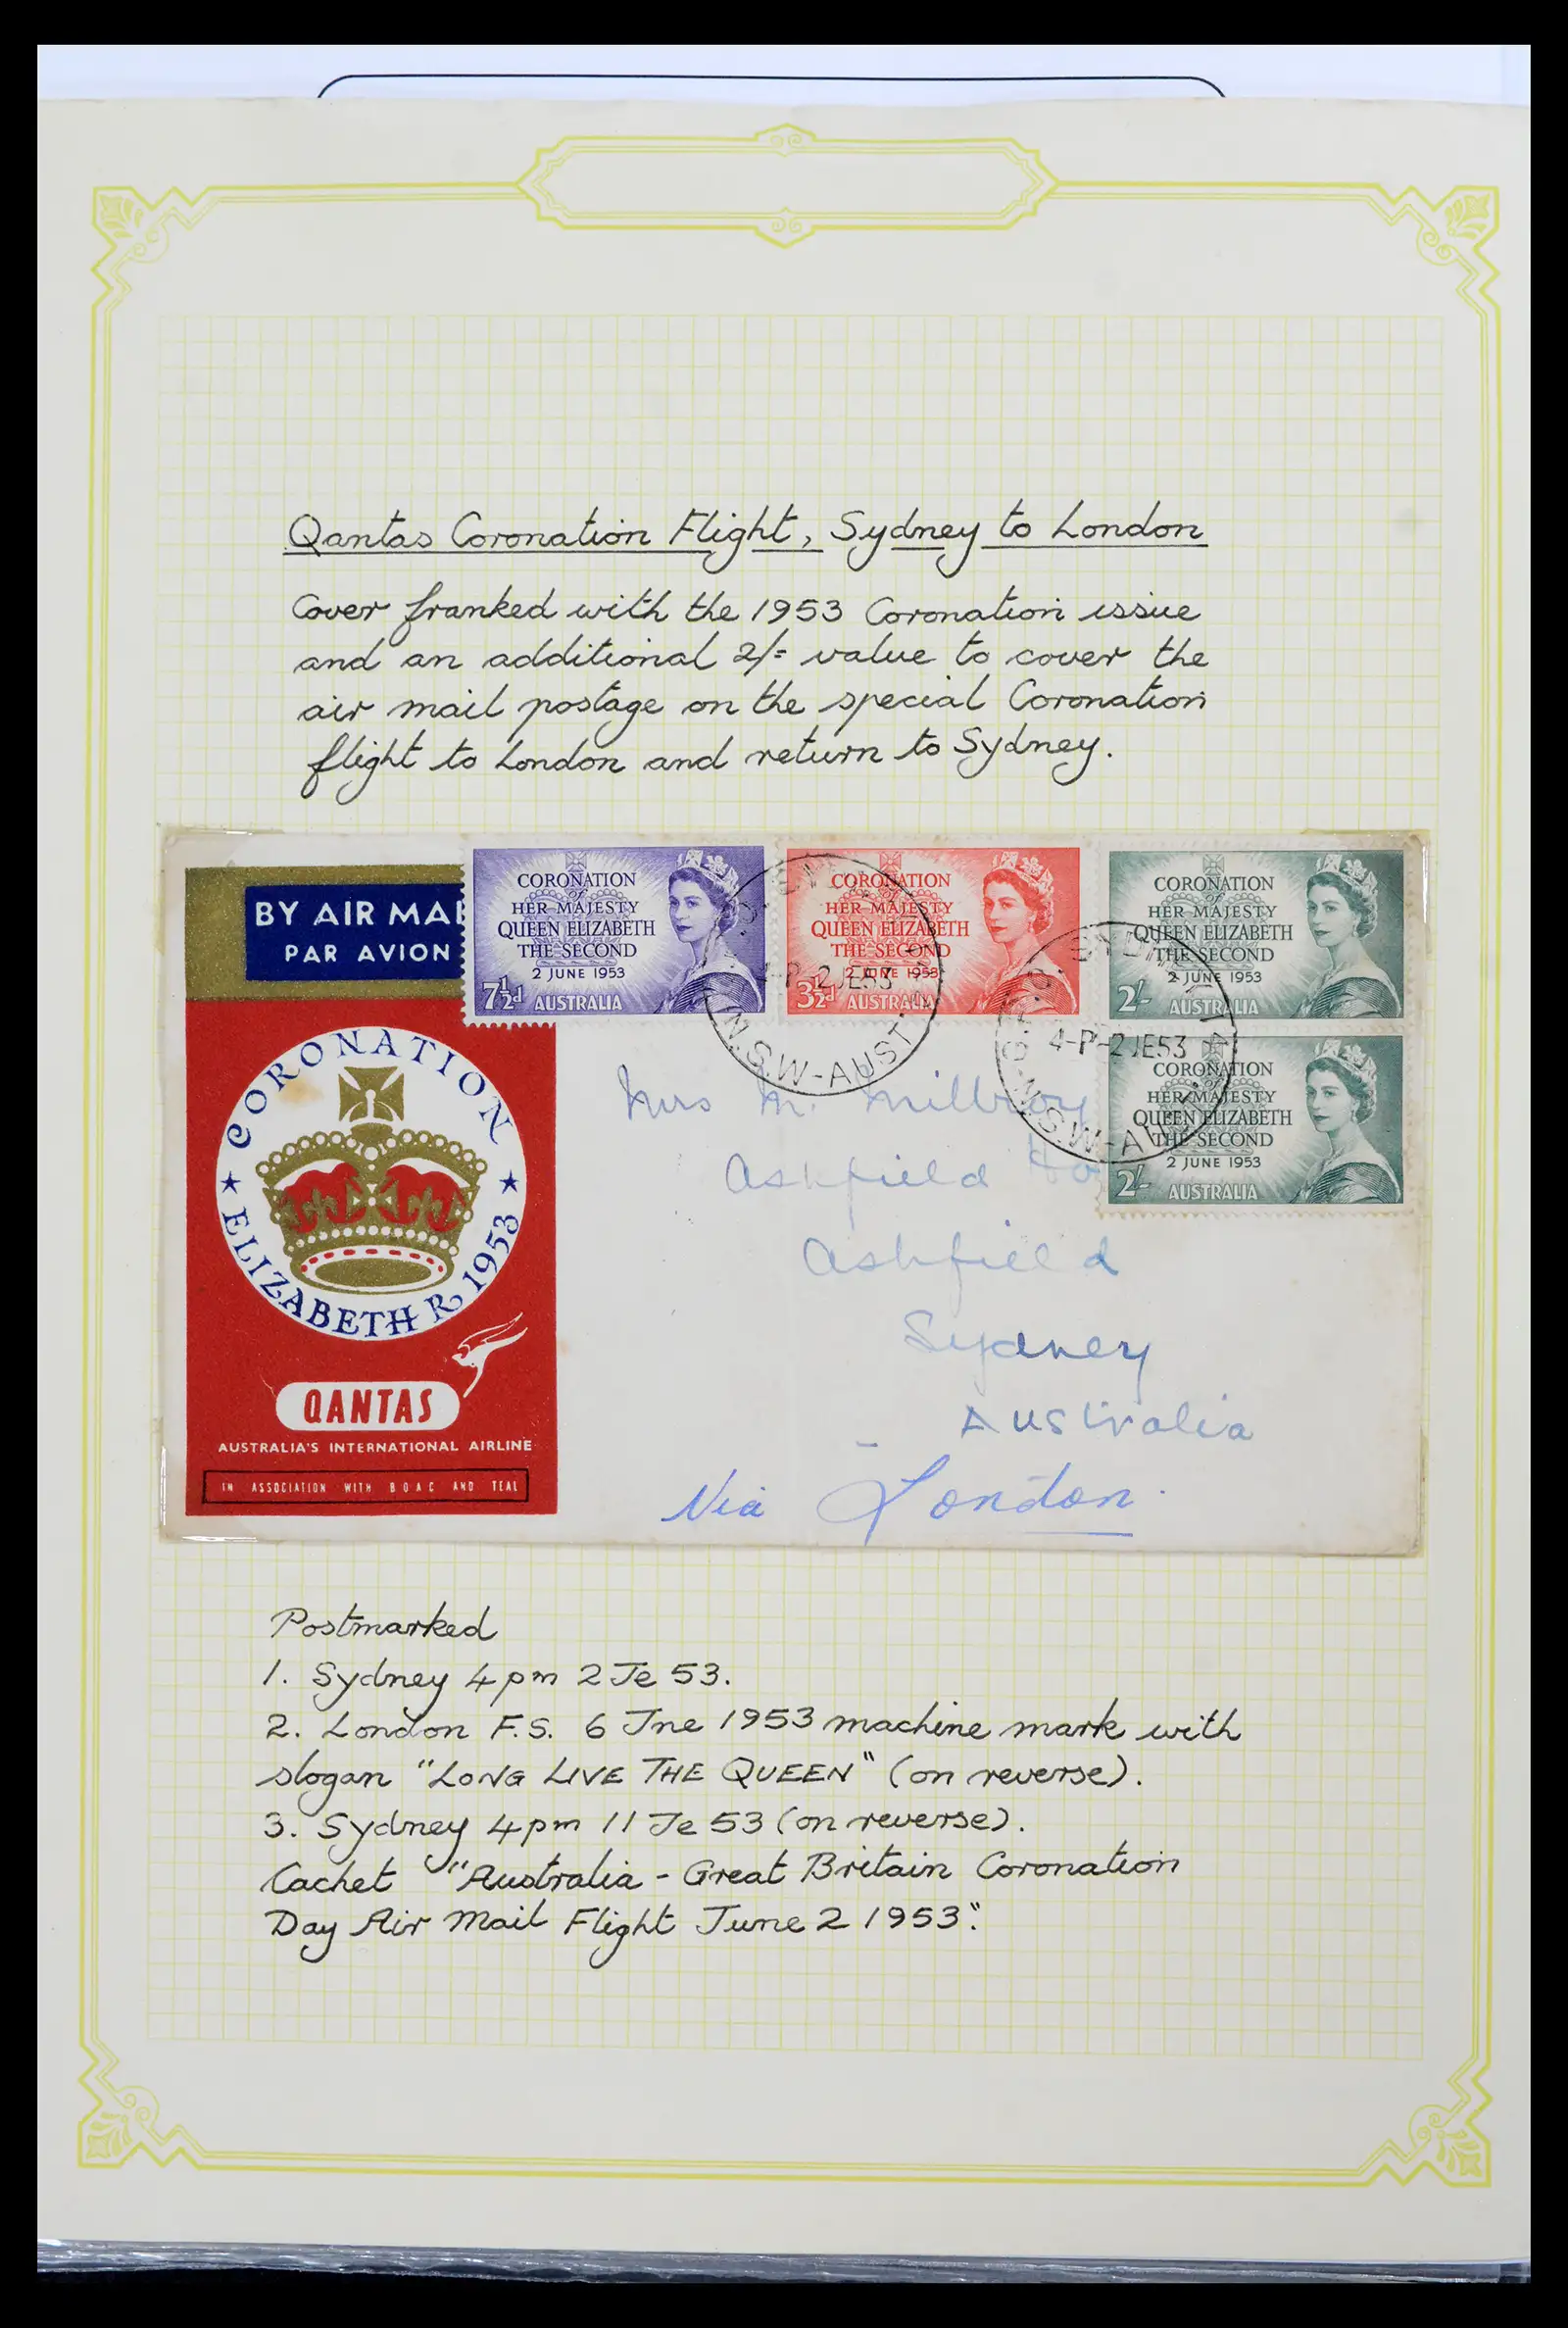 Qantas Coronation Flight, Sydney to London
Cover franked with the 1953 Coronation issue
and an additional 2/= value to cover the
air mail postage on the special Coronation
flight to London and return to Sydney.
BY AIR MAI
PAR AVION
CORONATION
OF
HER MAJESTY
QUEEN ELIZABETH
THE SECOND
2 JUNE 1953
7½d AUSTRALIA
CORONATION
OF
HER MAJESTY
QUEEN ELIZABETH
THE SECOND
2 JUNE 1953
3½d AUSTRALIA
CORONATION
OF
HER MAJESTY
QUEEN ELIZABETH
THE SECOND
2 JUNE 1953
2/- AUSTRALIA
CORONATION
OF
HER MAJESTY
QUEEN ELIZABETH
THE SECOND
2 JUNE 1953
2/- AUSTRALIA
2 JE53
N.S.W-AUST
4-P-2 JE53
N.S.W-AU
CORONATION
ELIZABETH R 1953
QANTAS
AUSTRALIA'S INTERNATIONAL AIRLINE
IN ASSOCIATION WITH BOAC AND TEAL
Mrs M. Millroy
Ashfield Ho
Ashfield
Sydney
Australia
Via London.
Postmarked
1. Sydney 4pm 2 Je 53.
2. London F.S. 6 Jne 1953 machine mark with
slogan "LONG LIVE THE QUEEN" (on reverse).
3. Sydney 4pm 11 Je 53 (on reverse).
Cachet "Australia - Great Britain Coronation
Day Air Mail Flight June 2 1953".